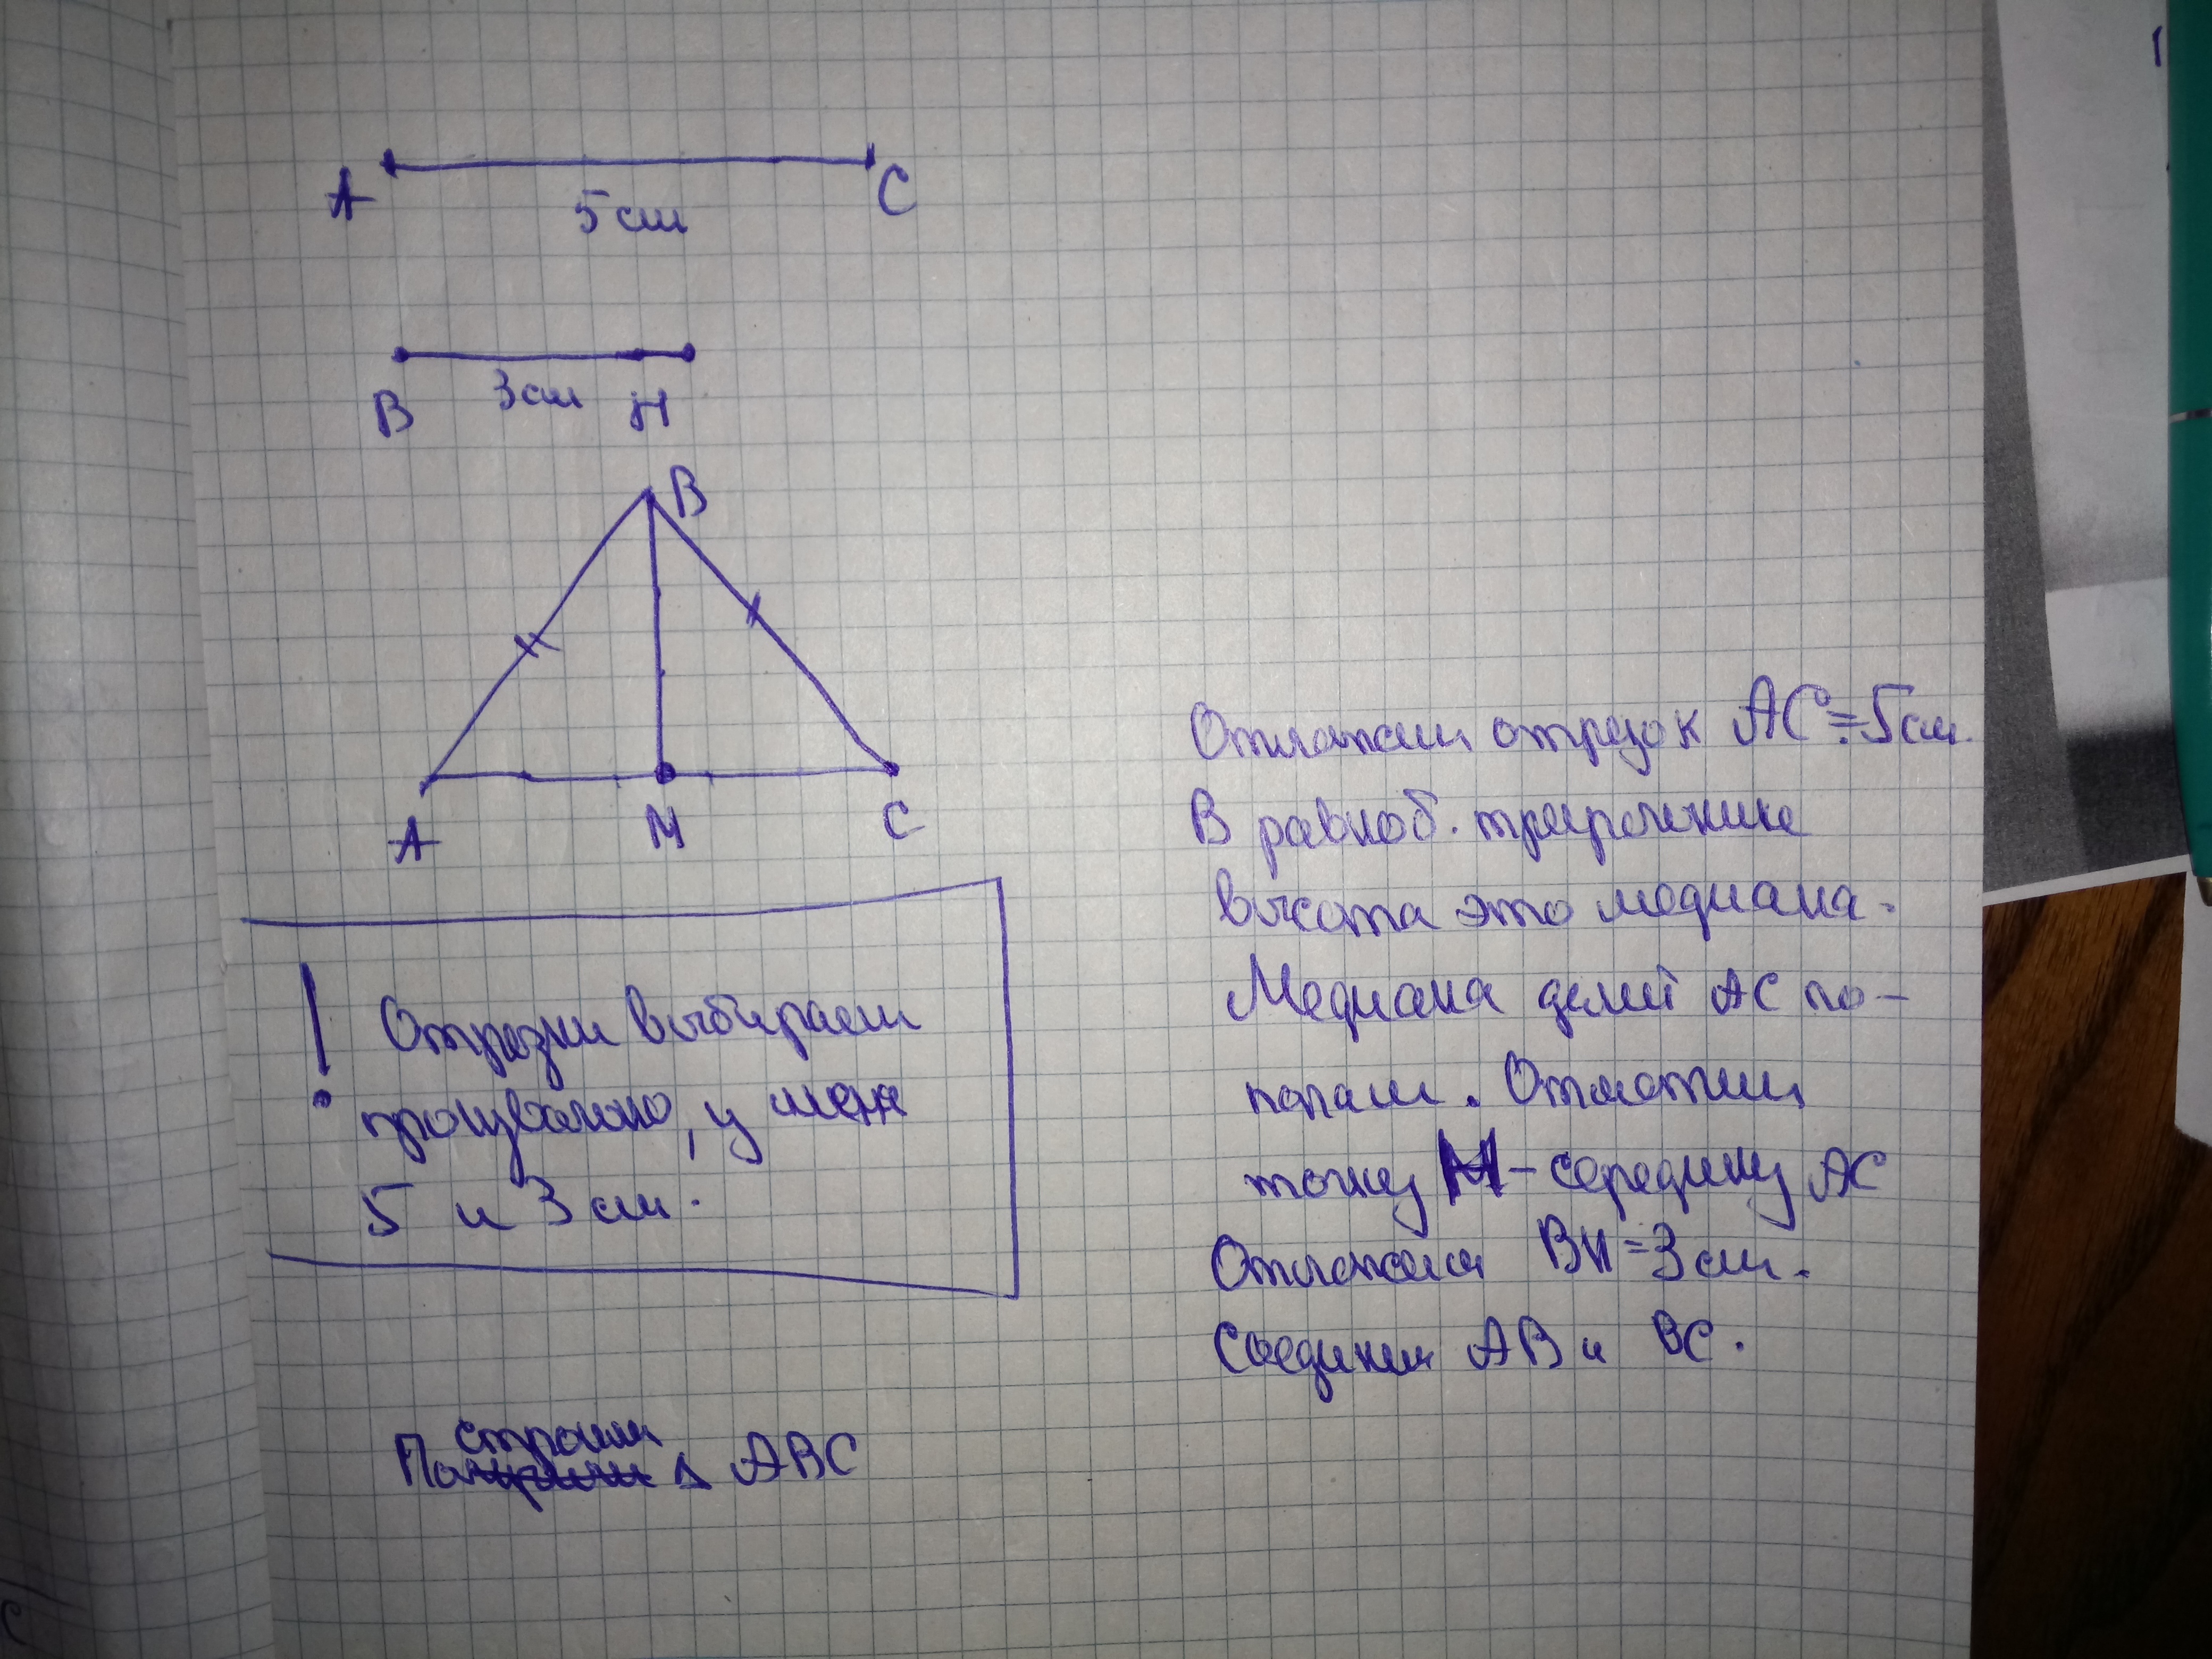 А
5 см
С
В
3 см
Н
В
А
М
С
! Отрезки выбираем
произвольно, у меня
5 и 3 см.
Построим Δ АВС
Отложим отрезок АС = 5 см.
В равноб. треугольнике
высота это медиана.
Медиана делит АС по-
полам. Отметим
точку М - середину АС
Отложим ВН = 3 см.
Соединим АВ и ВС.